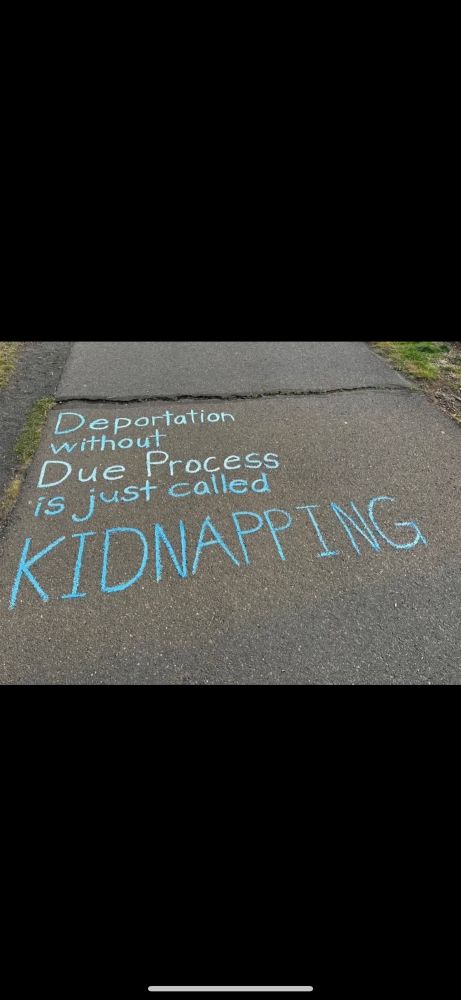 Deportation
without
Due Process
is just called
KIDNAPPING